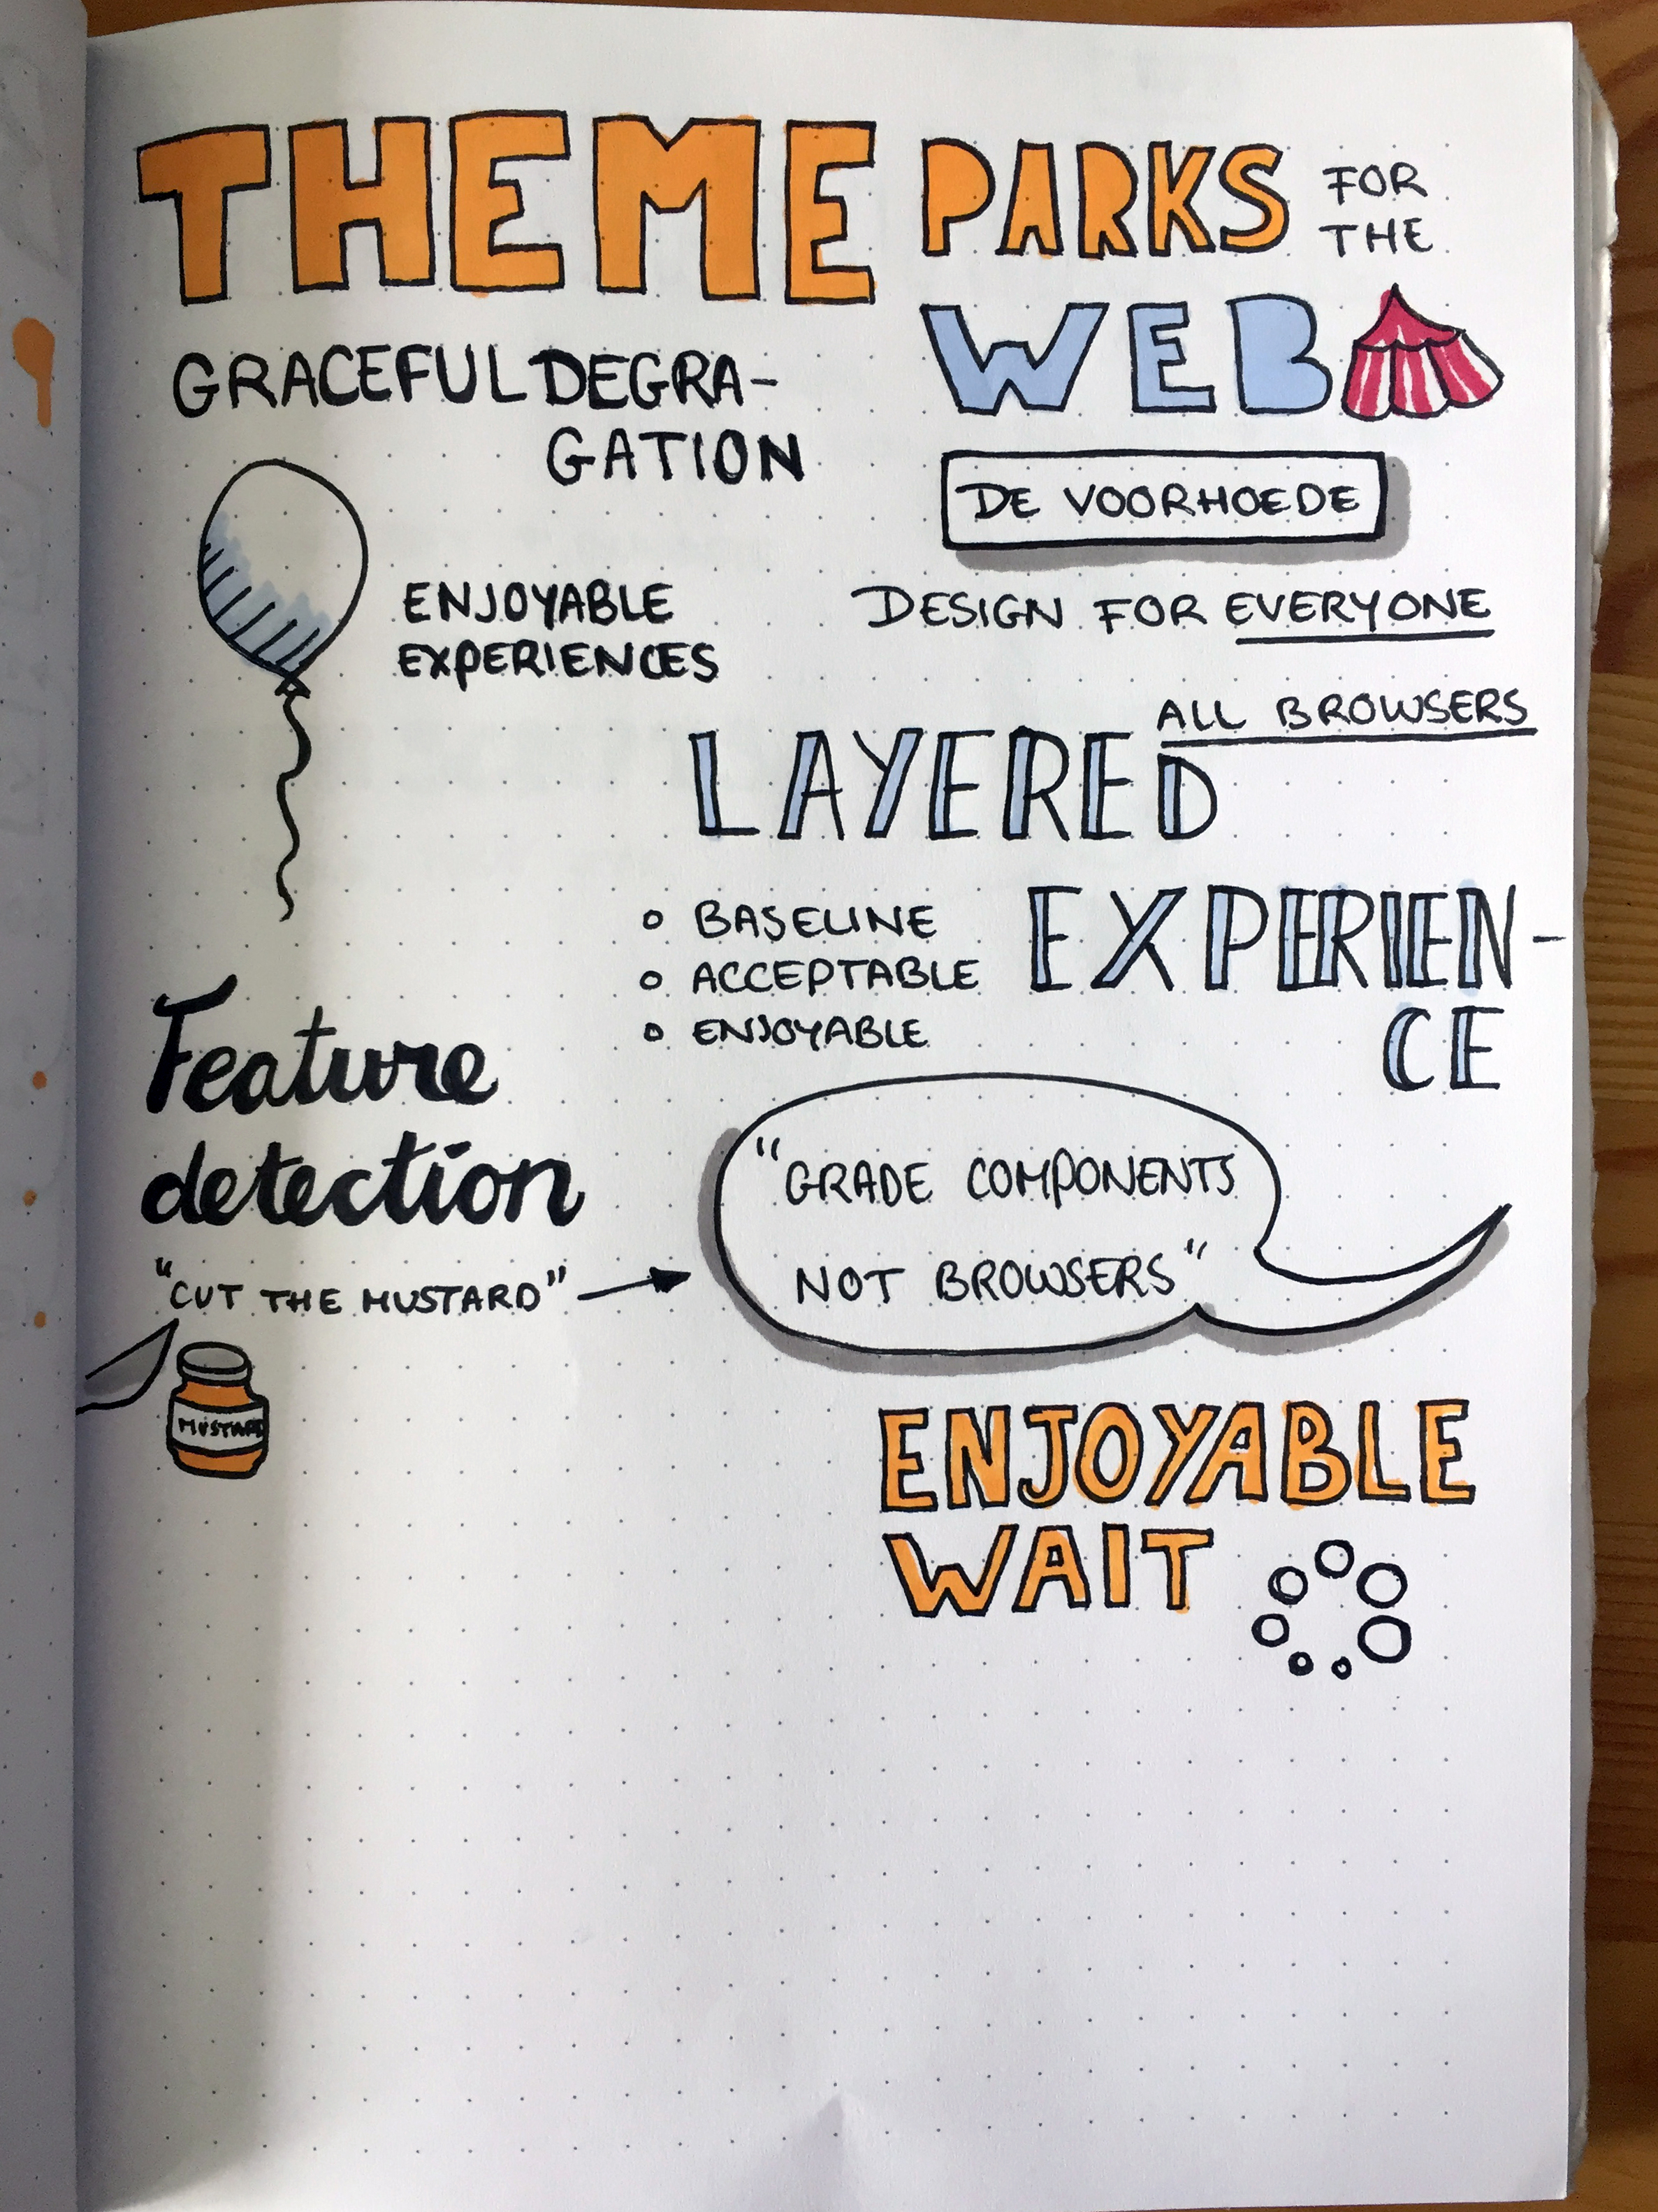 THEME PARKS FOR
THE
WEB
GRACEFUL DEGRA-
GATION
DE VOORHOEDE
ENJOYABLE
EXPERIENCES
DESIGN FOR EVERYONE
ALL BROWSERS
LAYERED
EXPERIEN-
CE
o BASELINE
o ACCEPTABLE
o ENJOYABLE
Feature
detection
"CUT THE MUSTARD"
MUSTARD
"GRADE COMPONENTS
NOT BROWSERS"
ENJOYABLE
WAIT